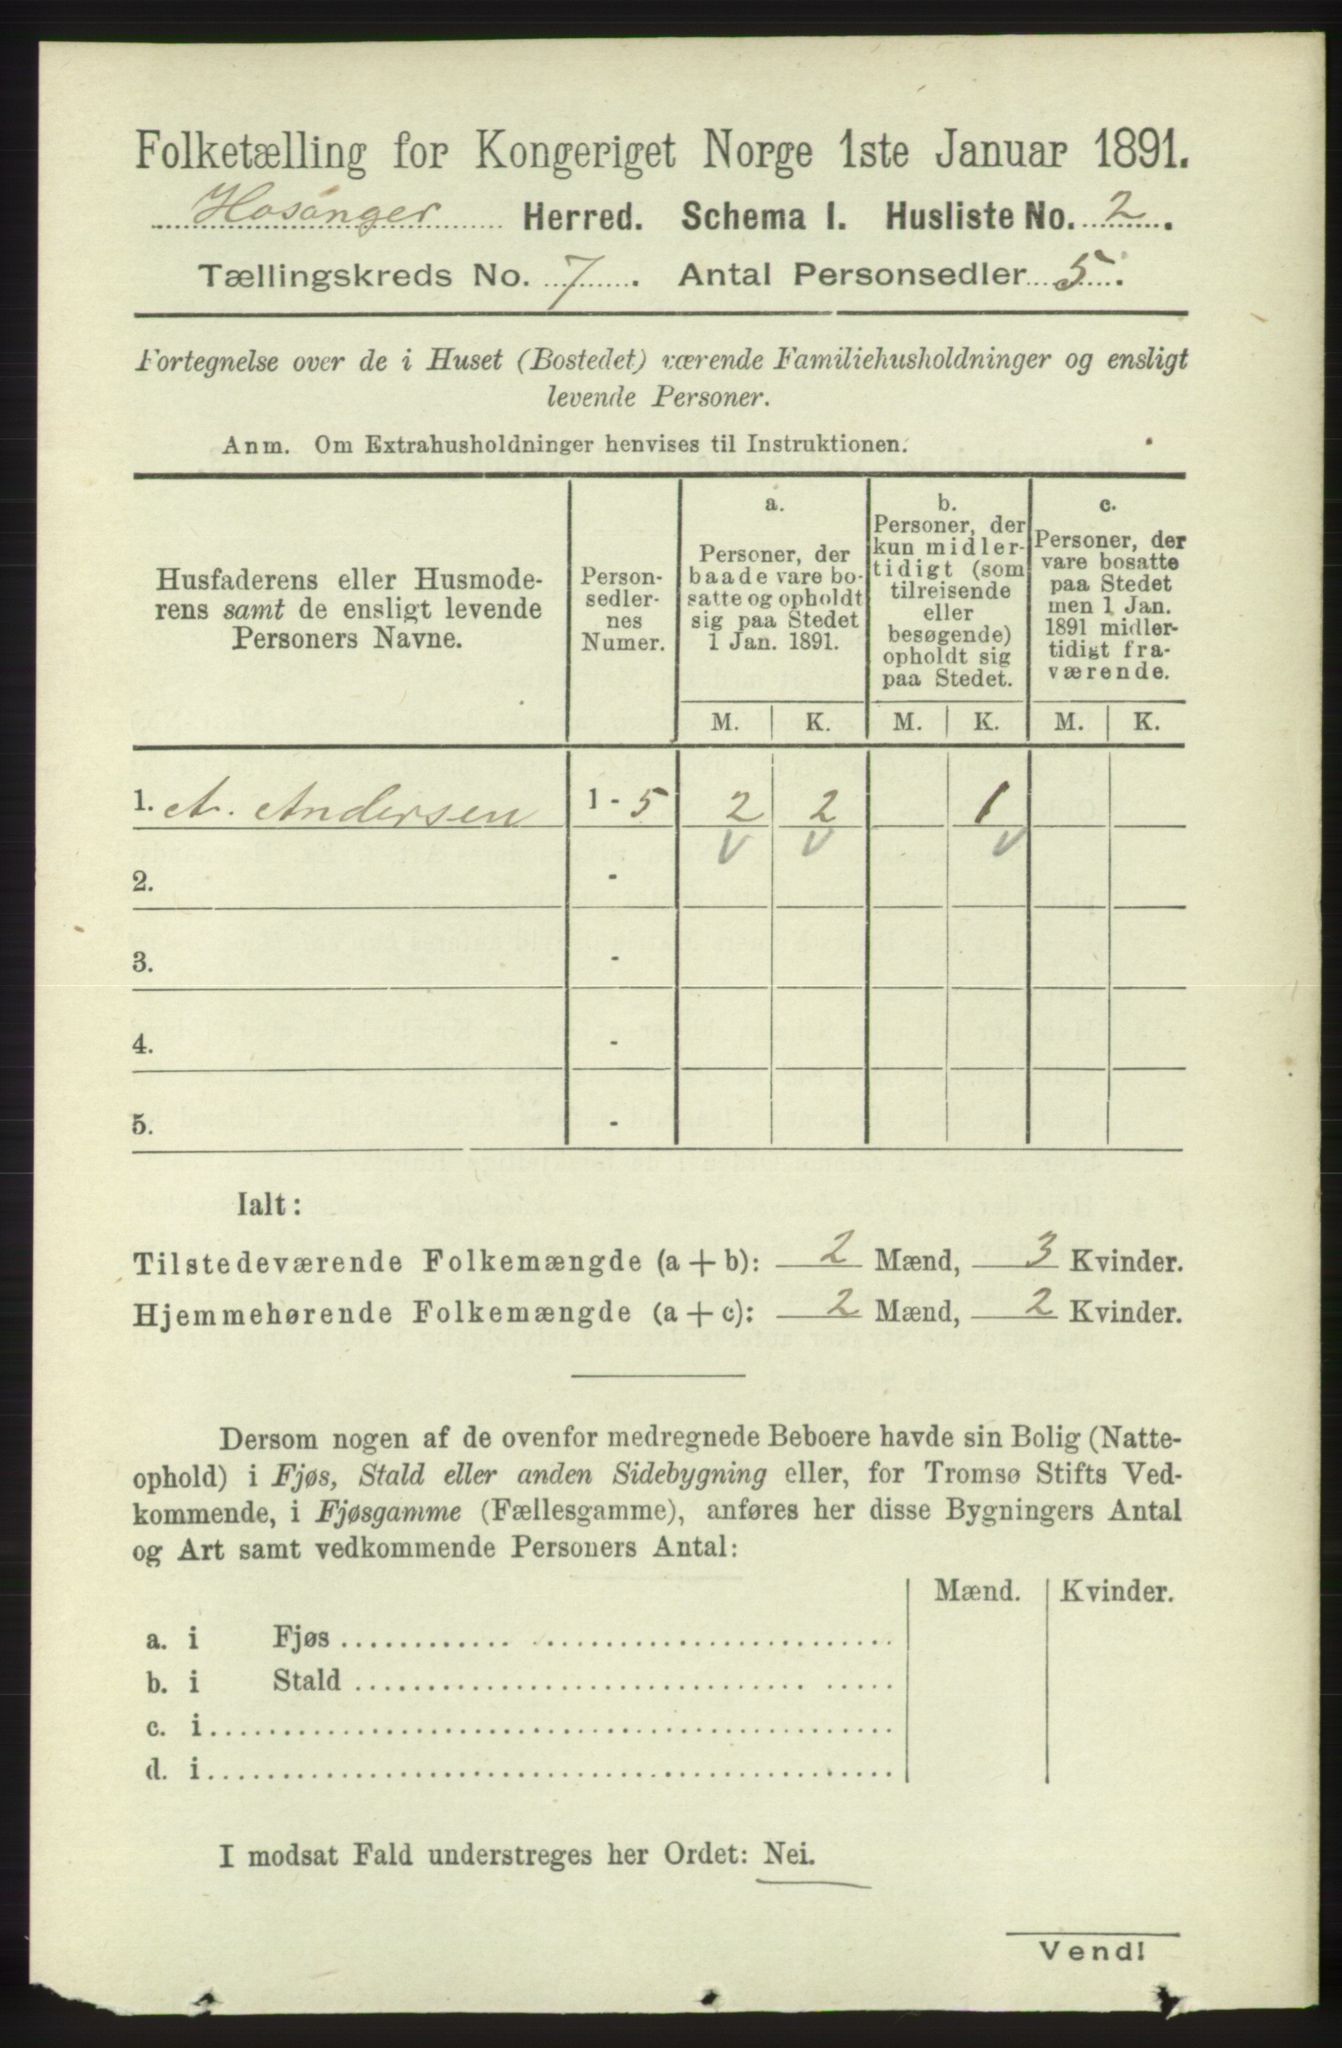 Folketælling for Kongeriget Norge 1ste Januar 1891.
Hosanger Herred. Schema I. Husliste No. 2.
Tællingskreds No. 7. Antal Personsedler 5.
Fortegnelse over de i Huset (Bostedet) værende Familiehusholdninger og ensligt
levende Personer.
Anm. Om Extrahusholdninger henvises til Instruktionen.
Husfaderens eller Husmode-
rens samt de ensligt levende
Personers Navne.
Person-
sedler-
nes
Numer.
a.
Personer, der
baade vare bo-
satte og opholdt
sig paa Stedet
1 Jan. 1891.
b.
Personer, der
kun midler-
tidigt (som
tilreisende
eller
besøgende)
opholdt sig
paa Stedet.
c.
Personer, der
vare bosatte
paa Stedet
men 1 Jan.
1891 midler-
tidigt fra-
værende.
M. K. M. K. M. K.
1. A. Andersen 1 - 5 2 2 1
2. -
3. -
4. -
5. -
Ialt:
Tilstedeværende Folkemængde (a + b): 2 Mænd, 3 Kvinder.
Hjemmehørende Folkemængde (a + c): 2 Mænd, 2 Kvinder.
Dersom nogen af de ovenfor medregnede Beboere havde sin Bolig (Natte-
ophold) i Fjøs, Stald eller anden Sidebygning eller, for Tromsø Stifts Ved-
kommende, i Fjøsgamme (Fællesgamme), anføres her disse Bygningers Antal
og Art samt vedkommende Personers Antal:
Mænd. Kvinder.
a. i Fjøs
b. i Stald
c. i
d. i
I modsat Fald understreges her Ordet: Nei.
Vend!